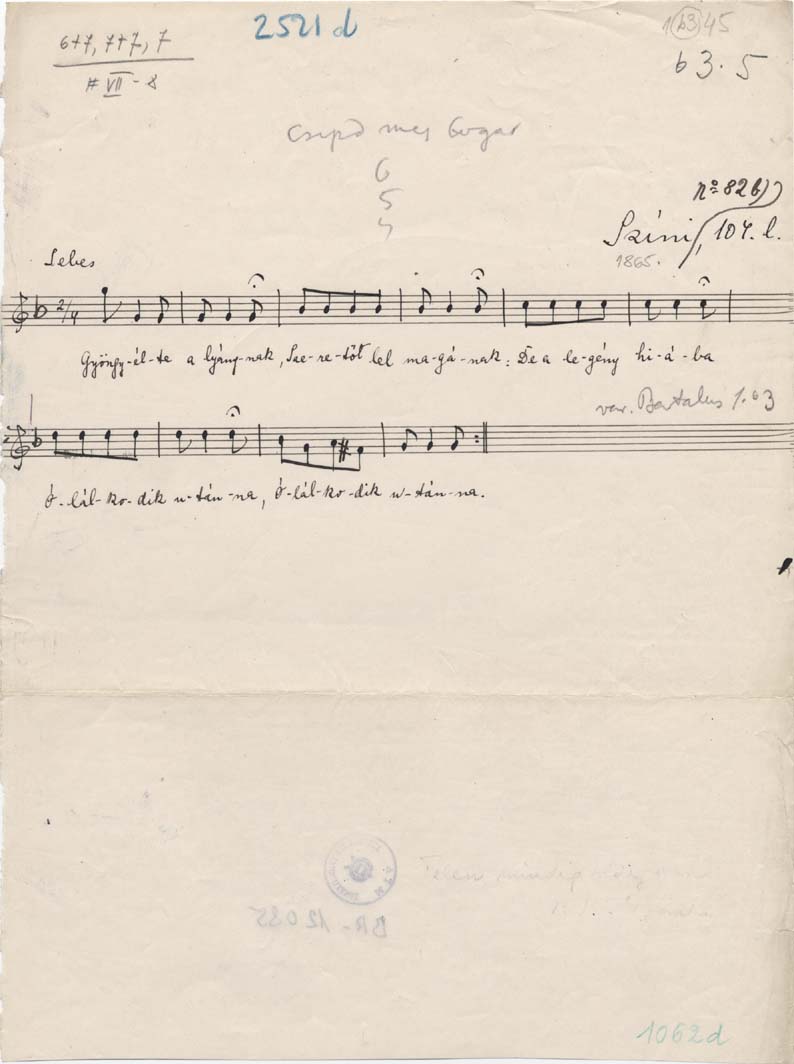 6+7, 7+7, 7
# VII - 8
2521 d
1 63 45
b 3 . 5
6
5
Nº 82 b)
Színi, 104. l.
1865.
Sebes
2/4
Gyöngy-él-te a lyány-nak, Sze-re-tőt lel ma-gá-nak: De a le-gény hi-á-ba
var. Bartalus 1.63
Ó-lál-ko-dik u-tán-na, Ó-lál-ko-dik u-tán-na.
BR-12035
1062d